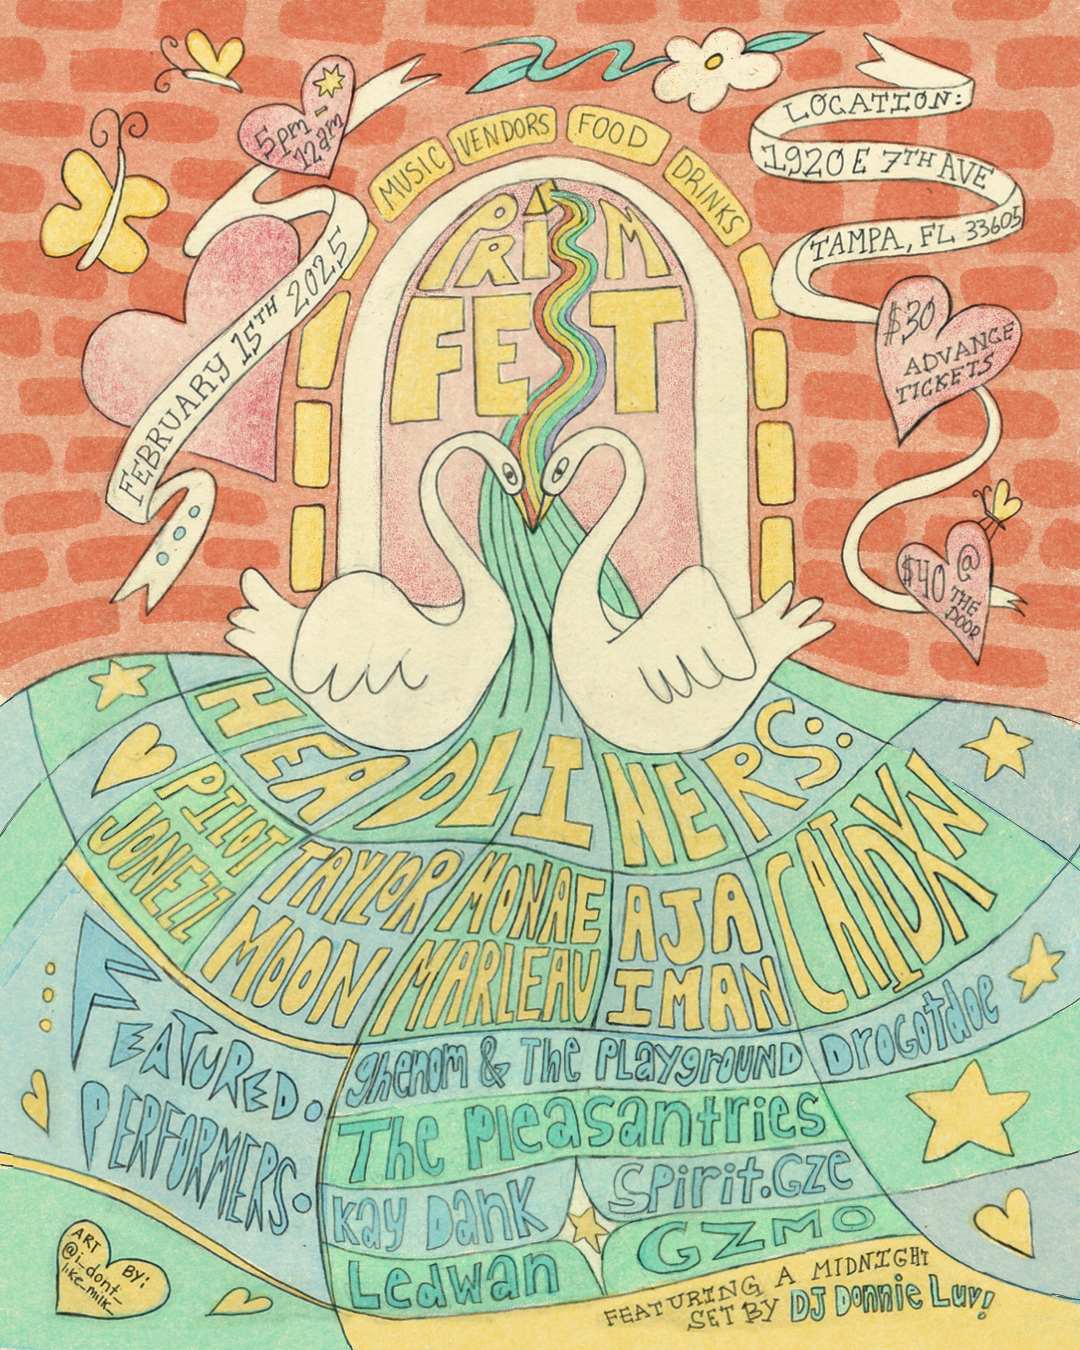 5pm -
12am
FEBRUARY 15TH 2025
MUSIC
VENDORS
FOOD
DRINKS
LOCATION:
1920 E 7TH AVE
TAMPA, FL 33605
PRISM
FEST
$30
ADVANCE
TICKETS
$40 @
THE
DOOR
HEADLINERS:
PILOT
JONEZZ
TAYLOR
MOON
MONAE
MARLEAU
AJA
IMAN
CATDXN
FEATURED
PERFORMERS:
ghenom & The PLAYgrOUND
Drogotdoe
The Pleasantries
Kay Dank
Spirit.Gze
Ledwan
GZMO
FEATURING A MIDNIGHT
SET BY DJ Donnie Luv!
ART BY:
@i_dont_
like_milk_